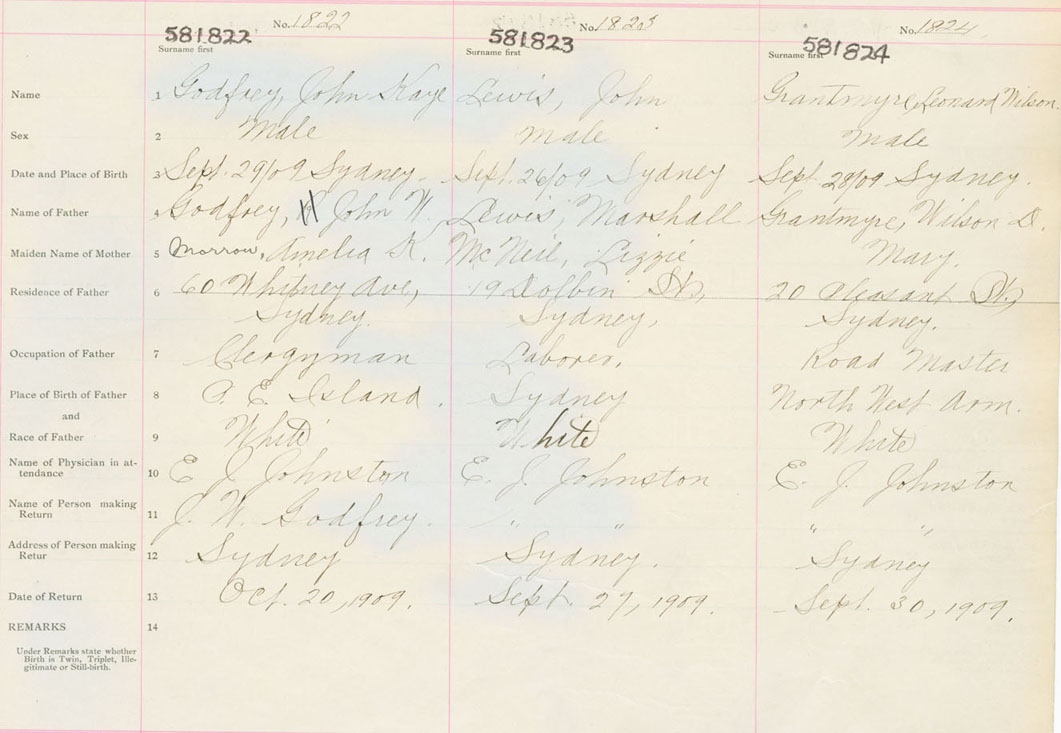 No. 1822 No. 1823 No. 1824
581822 581823 581824
Surname first Surname first Surname first
Name 1 Godfrey, John Kaye Lewis, John Grantmyre, Leonard Wilson.
Sex 2 Male Male Male
Date and Place of Birth 3 Sept. 29/09 Sydney. Sept. 26/09 Sydney Sept. 28/09 Sydney.
Name of Father 4 Godfrey, John W. Lewis, Marshall Grantmyre, Wilson D.
Maiden Name of Mother 5 Morrow, Amelia K. McNeil, Lizzie Mary.
Residence of Father 6 60 Whitney Ave, 19 Dolbin St, 20 Pleasant St,
Sydney. Sydney, Sydney.
Occupation of Father 7 Clergyman Laborer. Road Master
Place of Birth of Father 8 P. E. Island. Sydney North West Arm.
and
Race of Father 9 White White White
Name of Physician in at-
tendance 10 E. J. Johnston E. J. Johnston E. J. Johnston
Name of Person making
Return 11 J. W. Godfrey. " " " "
Address of Person making
Retur 12 Sydney Sydney. Sydney
Date of Return 13 Oct. 20, 1909. Sept. 27, 1909. Sept. 30, 1909.
REMARKS 14
Under Remarks state whether
Birth is Twin, Triplet, Ille-
gitimate or Still-birth.